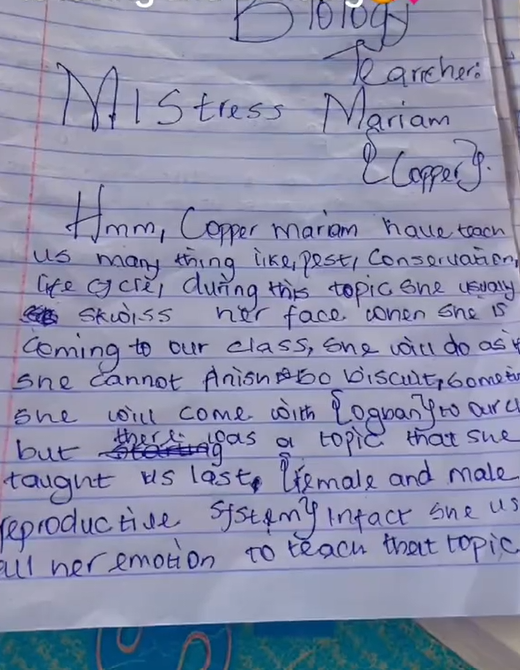 Biology
Tearcher:
MIStress Mariam
{Copper}.
Hmm, Copper mariam have teach
us many thing like, pest, Conservation,
life cycle, during this topic she usually
skwiss her face when she is
Coming to our class, she will do as if
she cannot finish 50 biscuit, Sometim
she will come with {ogban} to our cl
but there was a topic that she
taught us last, {female and male
reproductive system} infact she us
all her emotion to teach that topic